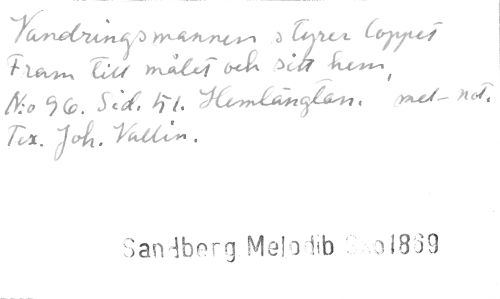 Vandringsmannen styrer loppet
Fram till målet och sitt hem,
N:o 96. Sid. 51. Hemlängtan. mel-not.
Tex. Joh. Wallin.
Sandberg Melodib 1869